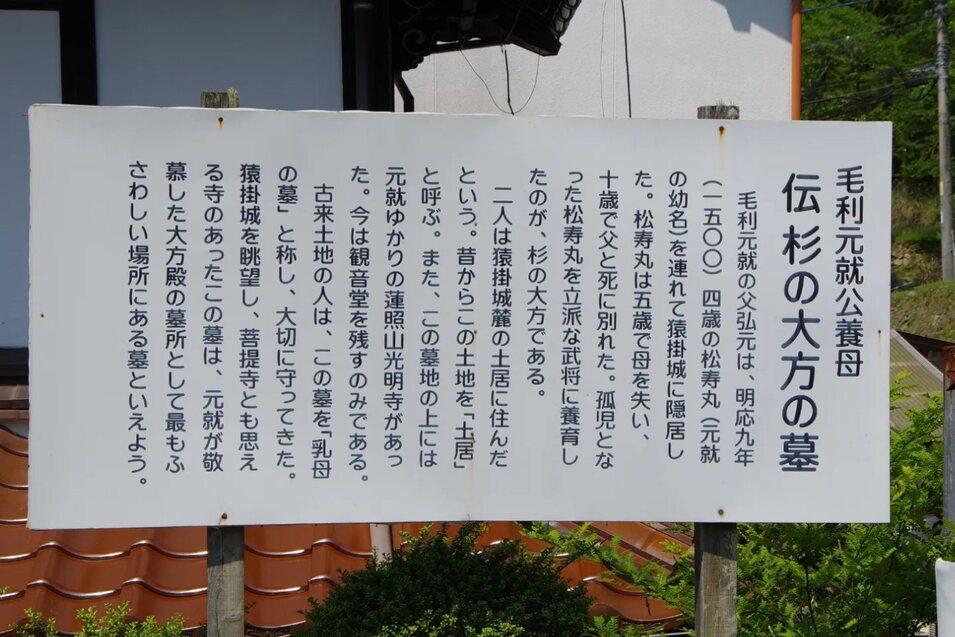 毛利元就公養母
伝杉の大方の墓
毛利元就の父弘元は、明応九年
（一五〇〇）四歳の松寿丸（元就
の幼名）を連れて猿掛城に隠居し
た。松寿丸は五歳で母を失い、
十歳で父と死に別れた。孤児とな
った松寿丸を立派な武将に養育し
たのが、杉の大方である。
二人は猿掛城麓の土居に住んだ
という。昔からこの土地を「土居」
と呼ぶ。また、この墓地の上には
元就ゆかりの蓮照山光明寺があっ
た。今は観音堂を残すのみである。
古来土地の人は、この墓を「乳母
の墓」と称し、大切に守ってきた。
猿掛城を眺望し、菩提寺とも思え
る寺のあったこの墓は、元就が敬
慕した大方殿の墓所として最もふ
さわしい場所にある墓といえよう。